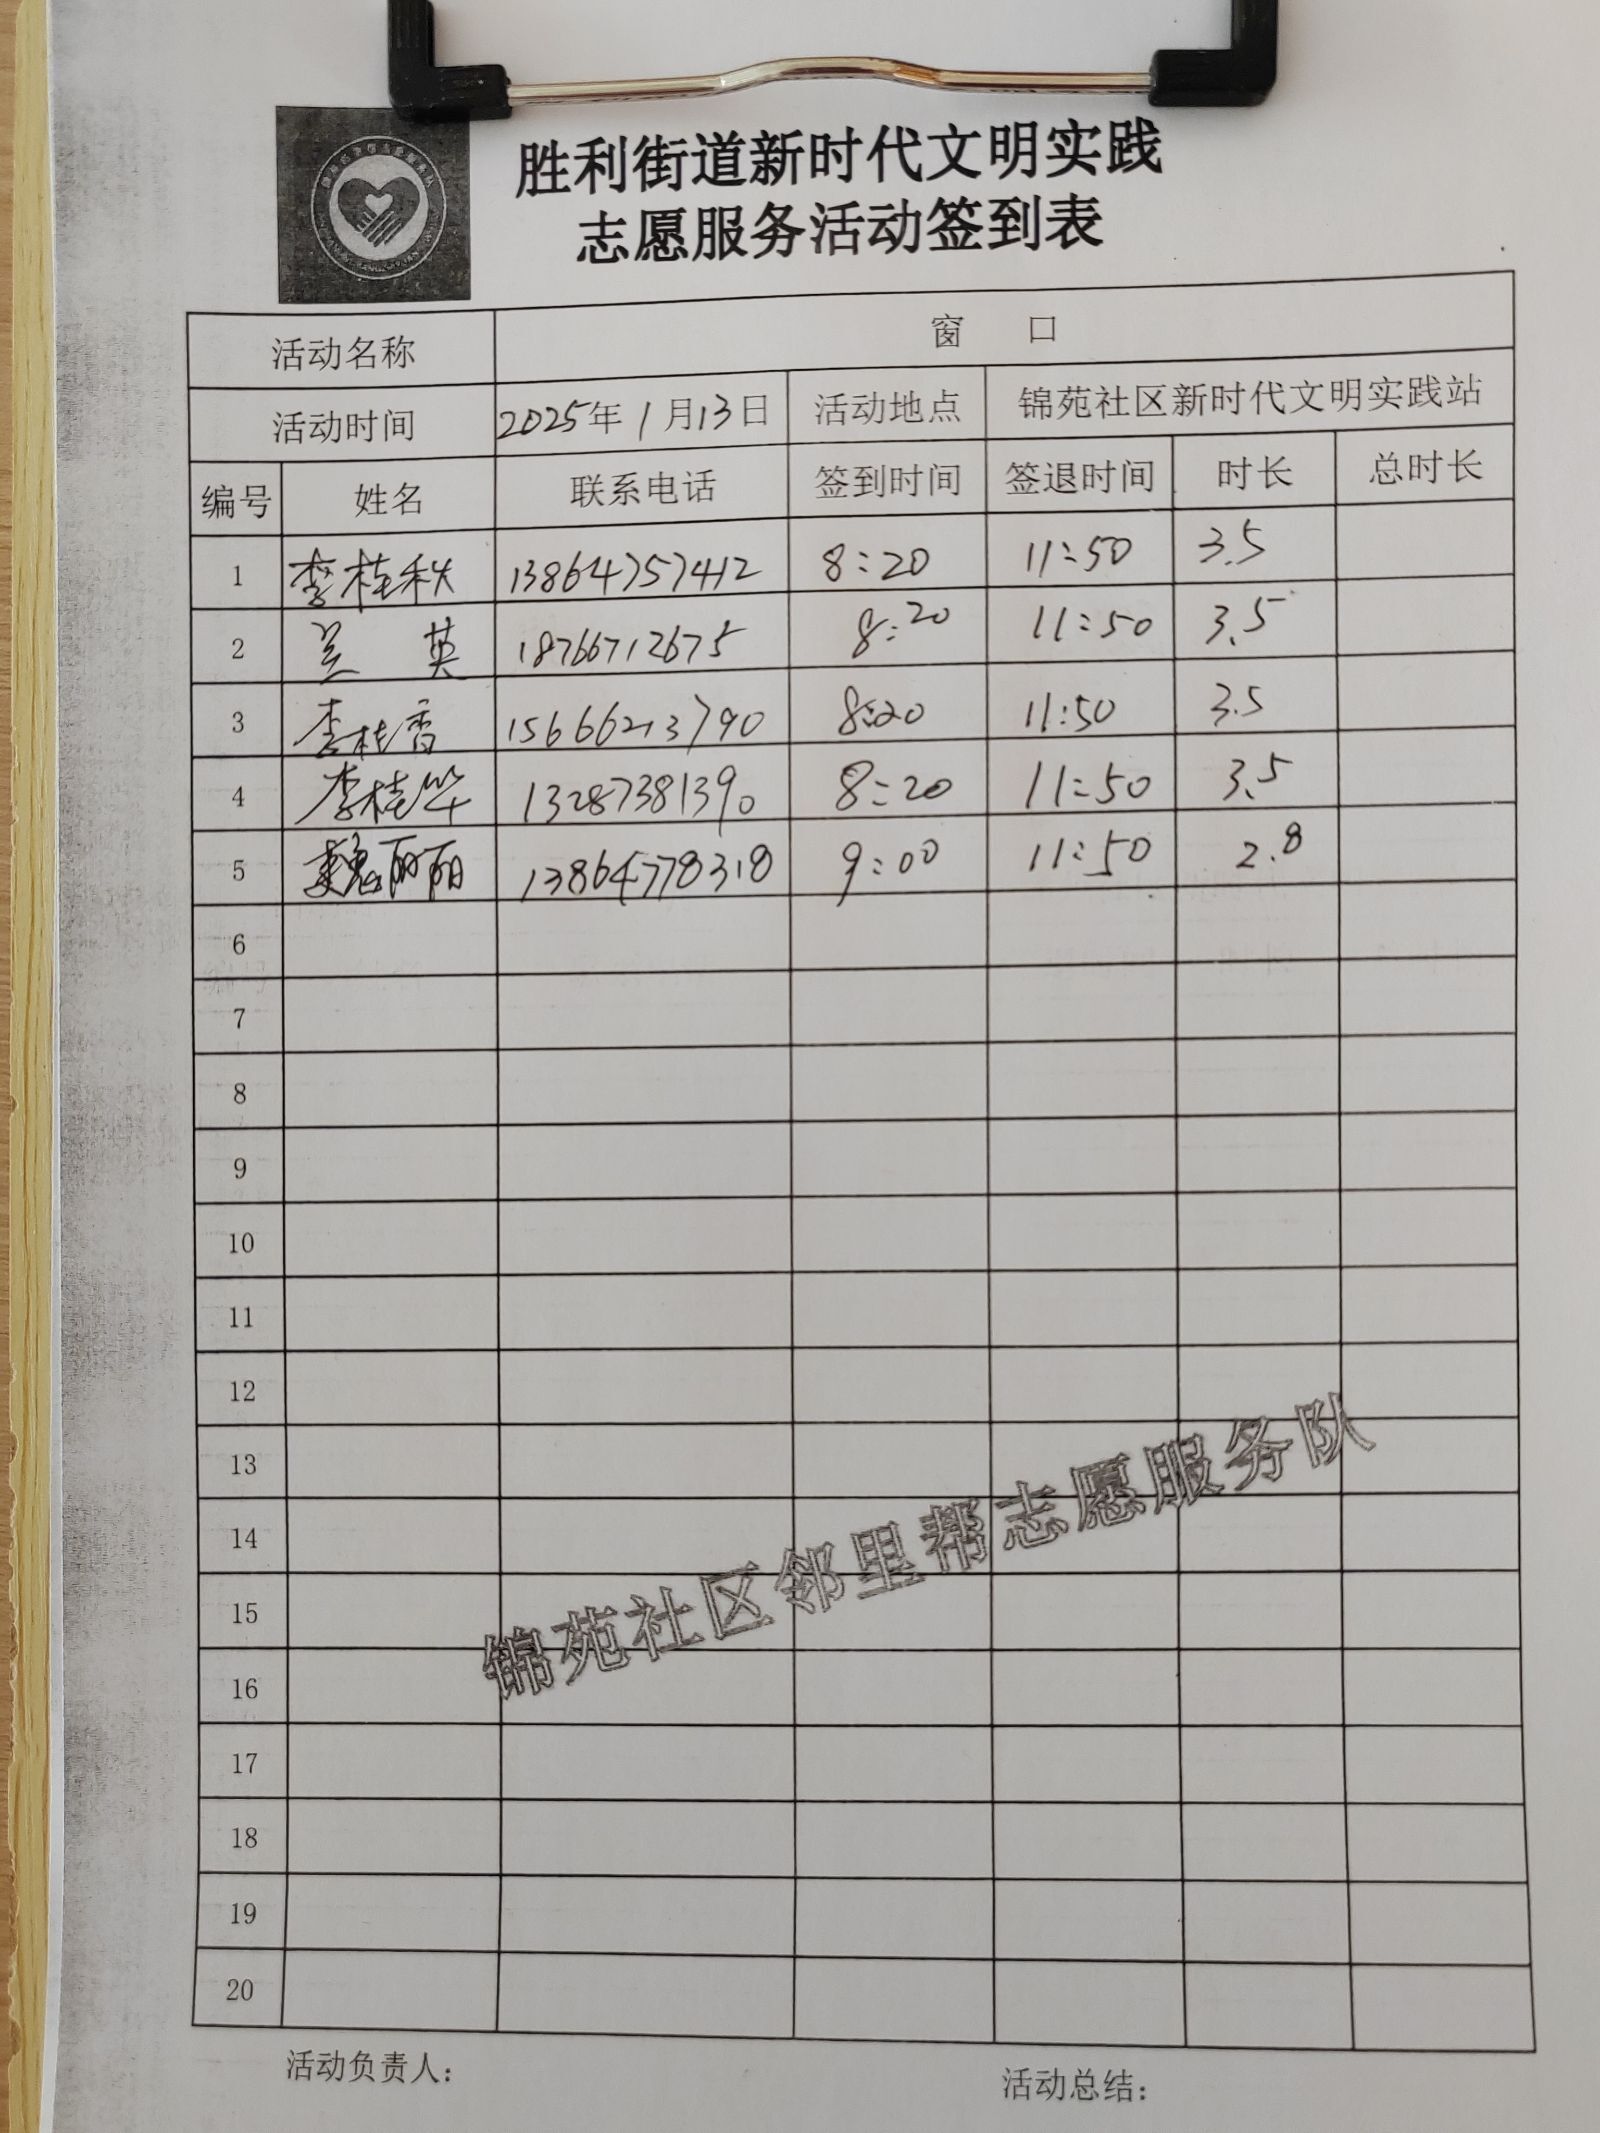 胜利街道新时代文明实践
志愿服务活动签到表
活动名称 窗 口
活动时间 2025年1月13日 活动地点 锦苑社区新时代文明实践站
编号 姓名 联系电话 签到时间 签退时间 时长 总时长
1 李桂秋 13864757412 8:20 11:50 3.5
2 兰 英 18766712675 8:20 11:50 3.5
3 李桂香 15666213790 8:20 11:50 3.5
4 李桂华 13287381390 8:20 11:50 3.5
5 魏丽丽 13864778318 9:00 11:50 2.8
6
7
8
9
10
11
12
13
14
15
16
17
18
19
20
锦苑社区邻里帮志愿服务队
活动负责人: 活动总结: